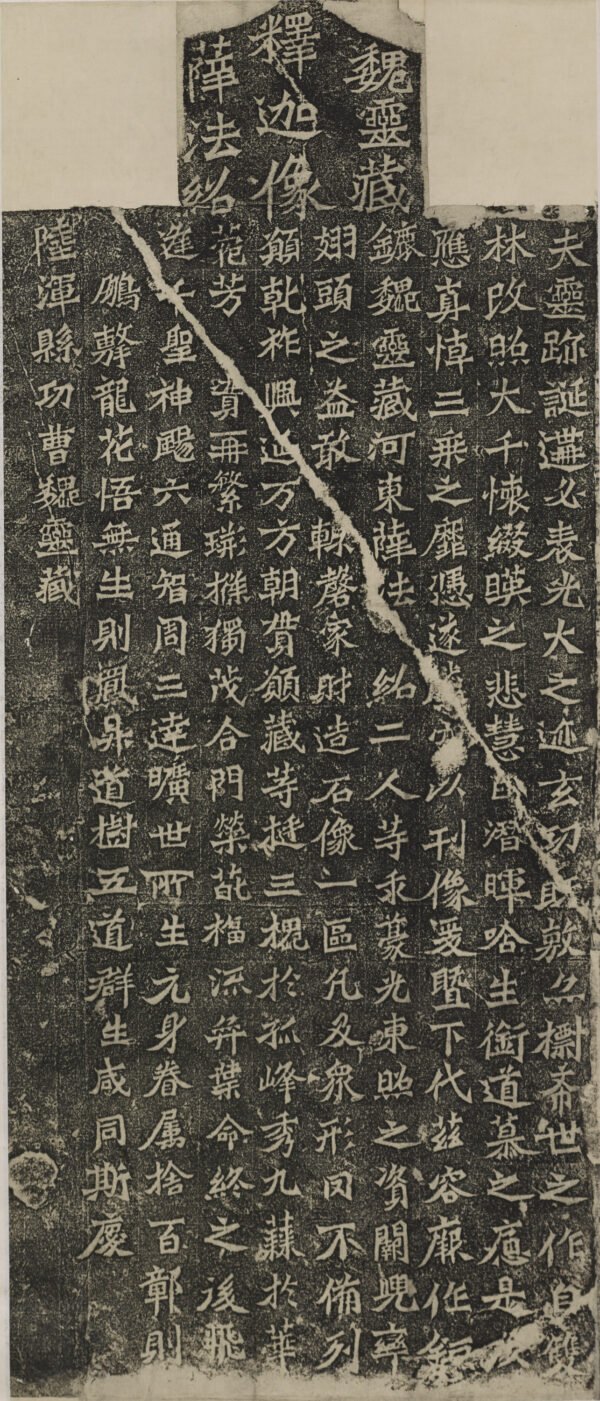 魏靈藏
釋迦像
薛法紹
夫靈跡誕遘必表光大之迹玄功既敷亦標希世之作自雙
林改照大千懷綴暎之悲慧日潛暉唅生銜道慕之痛是以
應真悼三乘之靡憑遂騰空以刊像爰暨下代茲容厥作鉅
鏕魏靈藏河東薛法紹二人等求豪光東照之資闕兜率
翅頭之益敢輒罄家財造石像一區凡及眾形罔不備列
願乾祚興延万方朝貫願藏等挺三槐於孤峰秀九蕀於華
菀芳實再繁獨茂合門榮葩福流弈葉命終之後飛
逢千聖神颺六通智周三達曠世所生元身眷属捨百鄣則
鵬擊龍花悟無生則鳳昇道樹五道群生咸同斯慶
陸渾縣功曹魏靈藏